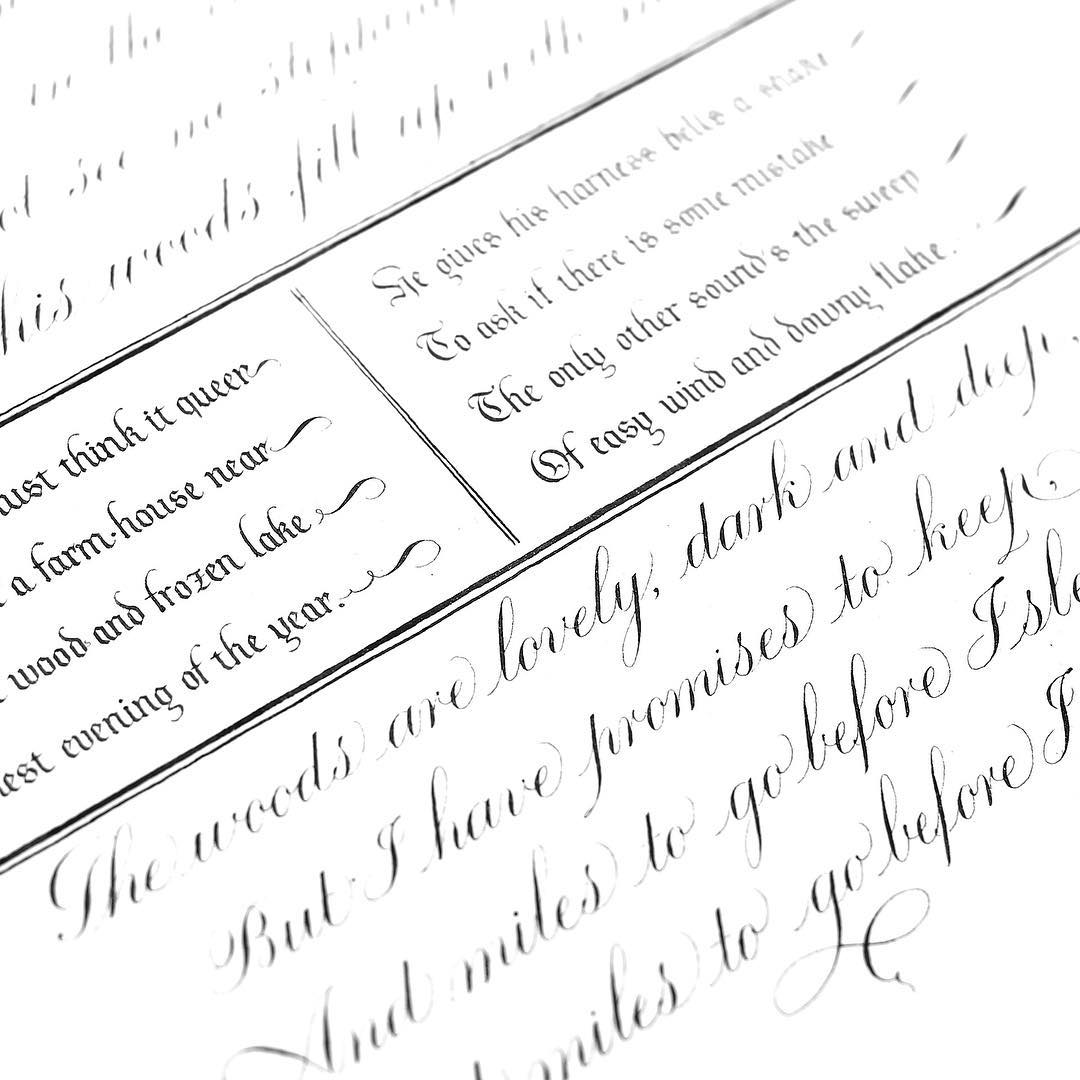 in the
not see me stopping
his woods fill up with
ust think it queer
a farm-house near
wood and frozen lake
est evening of the year.
He gives his harness bells a shake
To ask if there is some mistake
The only other sound's the sweep
Of easy wind and downy flake.
The woods are lovely, dark and deep,
But I have promises to keep,
And miles to go before I sle
miles to go before I